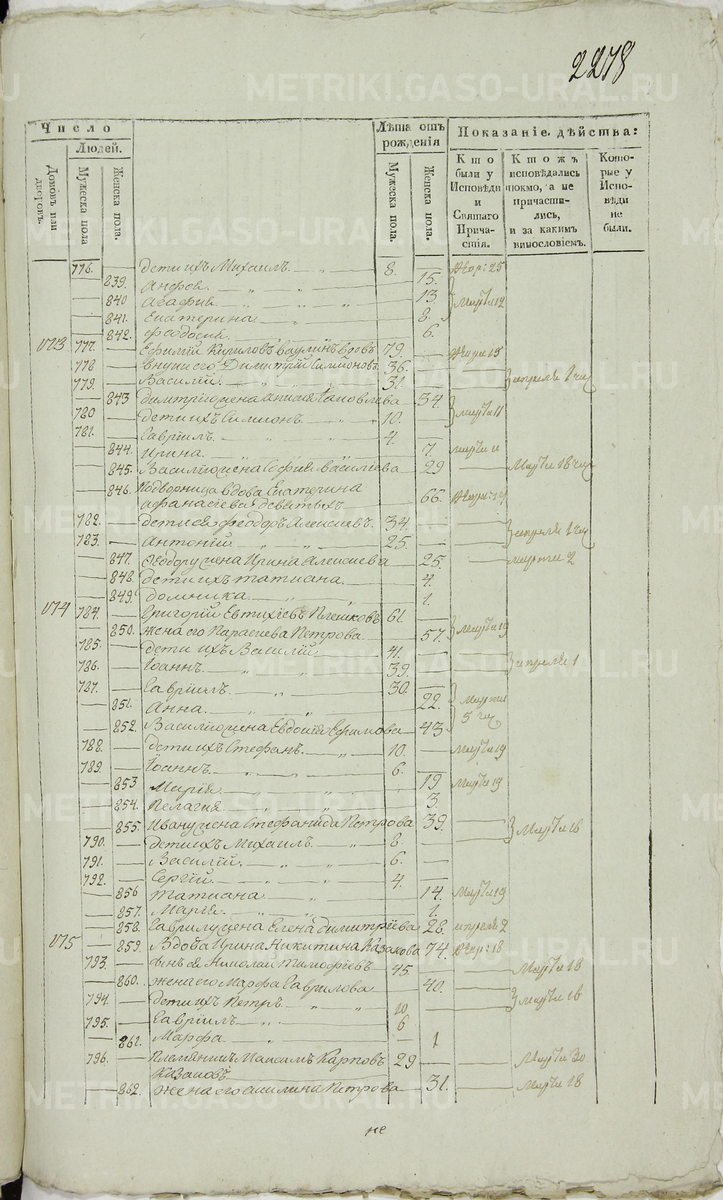 2278
METRIKI.GASO-URAL.RU
Число
Лѣта отъ рожденія
Показаніе дѣйства:
Людей.
Домовъ или дворовъ.
Мужеска пола
Женска пола.
Мужеска пола.
Женска пола.
Кто были у Исповѣди и Святаго Причастія.
Ктожъ исповѣдались токмо, а не причастились, и за какимъ винословіемъ.
Которые у Исповѣди не были.
776. дети ихъ Михаилъ 8.
839. 15.
840 Агафия 13 Марта 12
841. Екатерина 8.
842. Феодосия 6.
173 777. Кириловъ Ваулинъ вдовъ 79.
778 внуки его Димитрій Симионовъ 36.
779. Василій 31. апреля 1 чи
843 Димитрию жена 34.
780 дети ихъ Симионъ 10. Марта 11
781. Гавріилъ 4.
844. Ирина 7. марта 11
845. Василию жена Софія Василіева 29 Марта 18 чи
846. Подворница вдова Екатерина
Афанасіева Девятыхъ 66.
782. дети ея Феодоръ Алексиевъ 34. апреля 1 чи
783. Антоній 25.
847. Феодору жена Ирина Алексиева 25. марта 2
848. дети ихъ Татиана 4.
849. Домника 1.
174 784. Григорій Евтихіевъ 61
850. жена его Параскева Петрова 57. Марта 19
785. дети ихъ Василій 41.
786. Іоаннъ 39. апреля 1
787. Гавріилъ 30.
851. Анна 22. Марта
5 чи
852. Василию жена Евдокія Ефимова 43
788. дети ихъ Стефанъ 10. Марта 19
789. Іоаннъ 6.
853 Марія 19 Марта 19
854. Пелагия 3.
855. Ивану жена Стефанида Петрова 39. Марта 18
790. дети ихъ Михаилъ 8.
791. Василій 6.
792. Сергій 4.
856 Татиана 14. Марта 19
857. Марія 1.
858. Гаврилу жена Елена Димитріева 28. апреля 2
175 859. Вдова Ирина Никитина Казакова 74.
793. сынъ ея Николай Тимофіевъ 45 Марта 18
860. жена его Марфа Гаврилова 40.
794. дети ихъ Петръ 10 Марта 18
795. Гавріилъ 6
861. Марфа 1
796. Племянникъ Максимъ Карповъ 29 Марта 30
Казаковъ
862. жена его Акилина Петрова 31. Марта 18
не